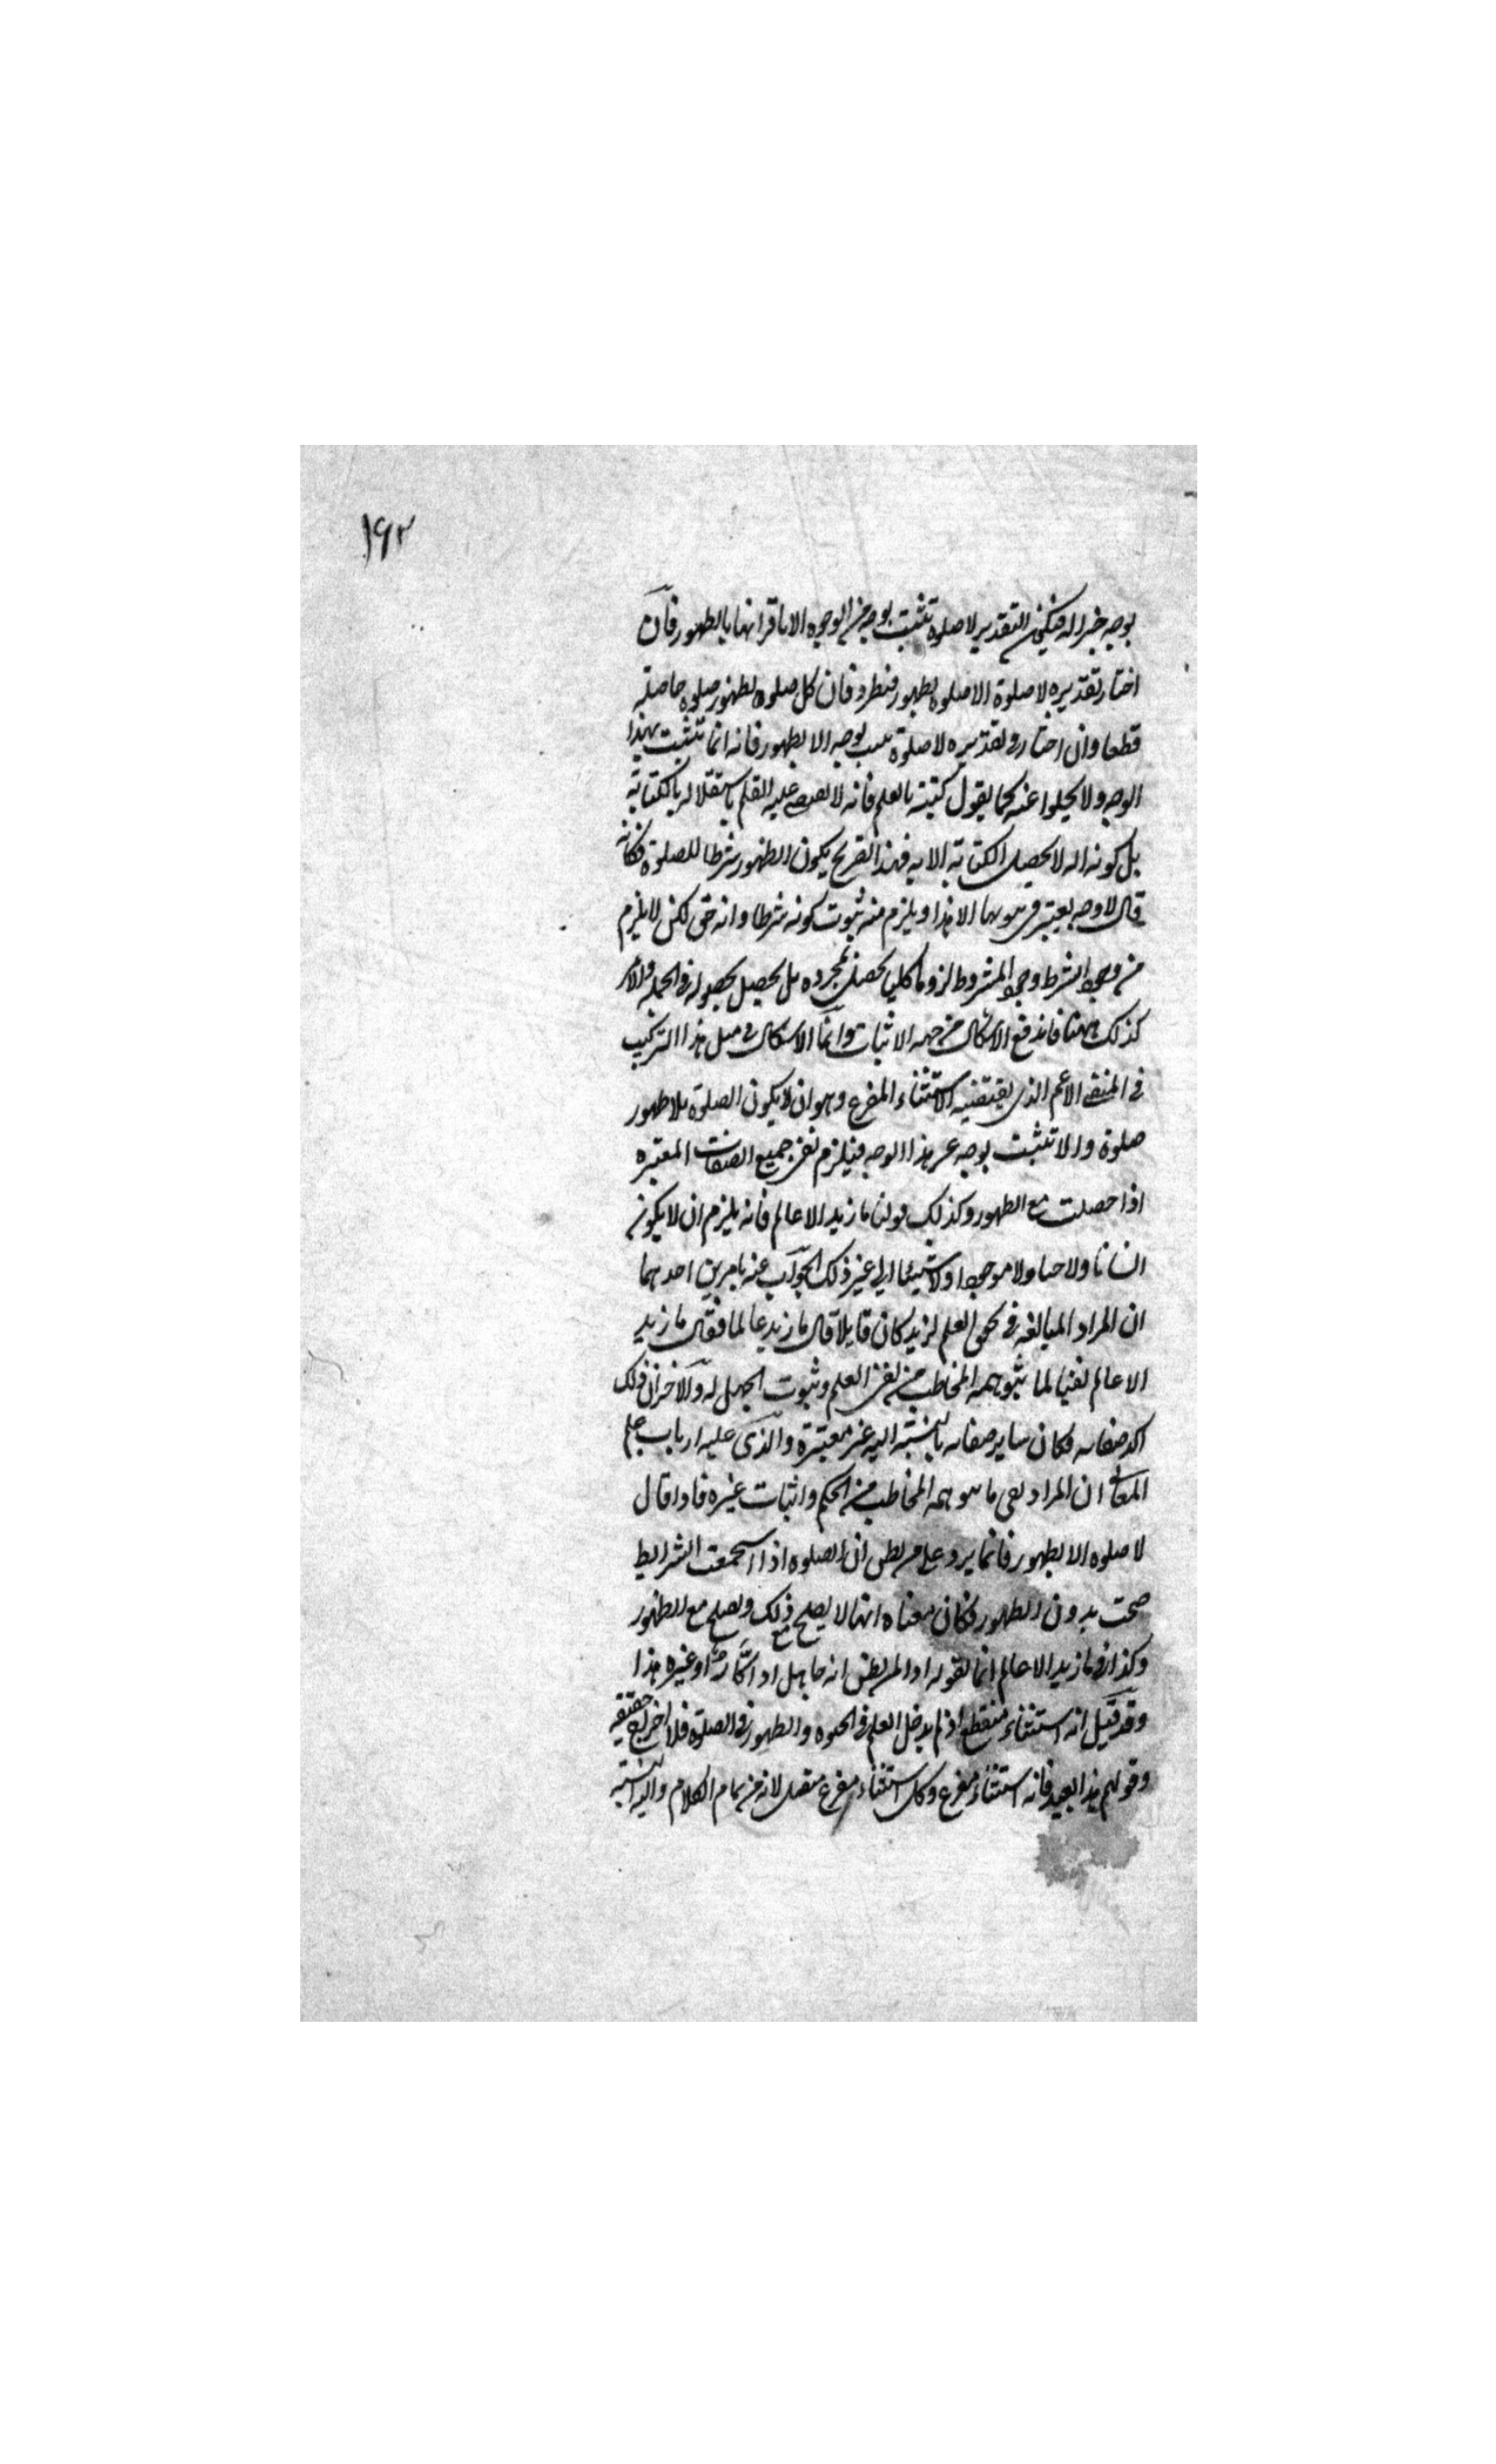 ١٩٢
بوجه خبرا له فيكون التقدير لا صلوة تثبت بوجه من الوجوه الا باقترانها بالطهور فان
اختار تقديره لا صلوة الا صلوة بطهور فيطرد فان كل صلوة بطهور صلوة حاصلة
قطعا وان اختار تقديره لا صلوة تثبت بوجه الا بطهور فانه انما تثبت بهذا
الوجه ولا يخلوا عنه كما يقول كتبت بالقلم فانه لا يقتضي عليه القلم باستقلاله بالكتابة
بل كونه اله لا يحصل الكتابة الا به فهذا يكون الطهور شرطا للصلوة فكانه
قال لا وجه يعتبر في ثبوتها الا هذا ويلزم منه ثبوت كونه شرطا وانه حق لكن لا يلزم
من وجود الشرط وجود المشروط لزوما كليا يحصل بمجرده بل يحصل بحصوله في الجملة والامر
كذلك ههنا فاندفع الاشكال من جهة الاثبات وانما الاشكال في مثل هذا التركيب
في المنفي الاعم الذي يقتضيه الاستثناء المفرغ وهو ان لا يكون الصلوة بلا طهور
صلوة ولا تثبت بوجه غير هذا الوجه فيلزم نفي جميع الصفات المعتبره
اذا حصلت مع الطهور وكذلك قولنا ما زيد الا عالم فانه يلزم ان لا يكون
انسانا ولا حيا ولا موجودا ولا شيئا الى غير ذلك الجواب عنه بامرين احدهما
ان المراد المبالغة في تحقق العلم لزيد كان قايلا قال ما زيد عالما فقال ما زيد
الا عالم نفيا لما يتوهمه المخاطب من نفي العلم وثبوت الجهل له والاخر ان ذلك
اكد صفاته فكان ساير صفاته بالنسبة اليه غير معتبرة والذي عليه ارباب علم
المعاني ان المراد نفي ما يتوهمه المخاطب من الحكم واثبات غيره فاذا قال
لا صلوة الا بطهور فانما يرد على من يظن ان الصلوة اذا استجمعت الشرايط
صحت بدون الطهور فكان معناه انها لا يصح مع ذلك ويصح مع الطهور
وكذا في ما زيد الا عالم انما يقوله اذا لم يظن انه جاهل او غيره هذا
وقد قيل انه استثناء منقطع اذ لم يدخل العلم في الحيوة والطهور في الصلوة فلا اخراج حقيقة
وقولهم هذا بعيد فانه استثناء مفرغ وكل استثناء مفرغ متصل لانه من تمام الكلام واليه النسبة